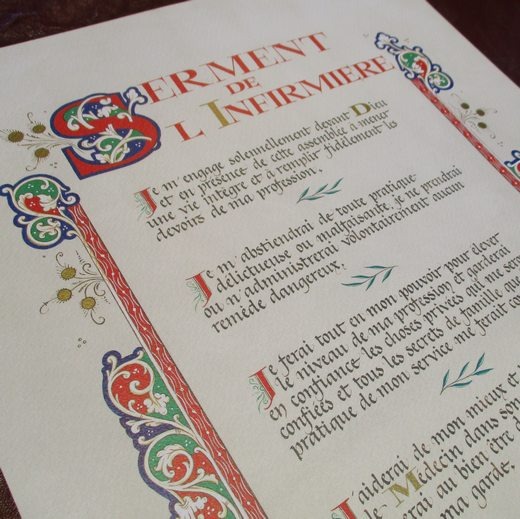 SERMENT
DE
L INFIRMIÈRE
Je m'engage solennellement devant Dieu
et en présence de cette assemblée à mener
une vie intègre et à remplir fidèlement les
devoirs de ma profession.
Je m'abstiendrai de toute pratique
délictueuse ou malfaisante, je ne prendrai
ou n'administrerai volontairement aucun
remède dangereux.
Je ferai tout en mon pouvoir pour élever
le niveau de ma profession et garderai
en confiance les choses privées qui me
confiées et tous les secrets de famille que
pratique de mon service me ferait
J'aiderai de mon mieux et
le Médecin dans son
au bien être
ma garde.